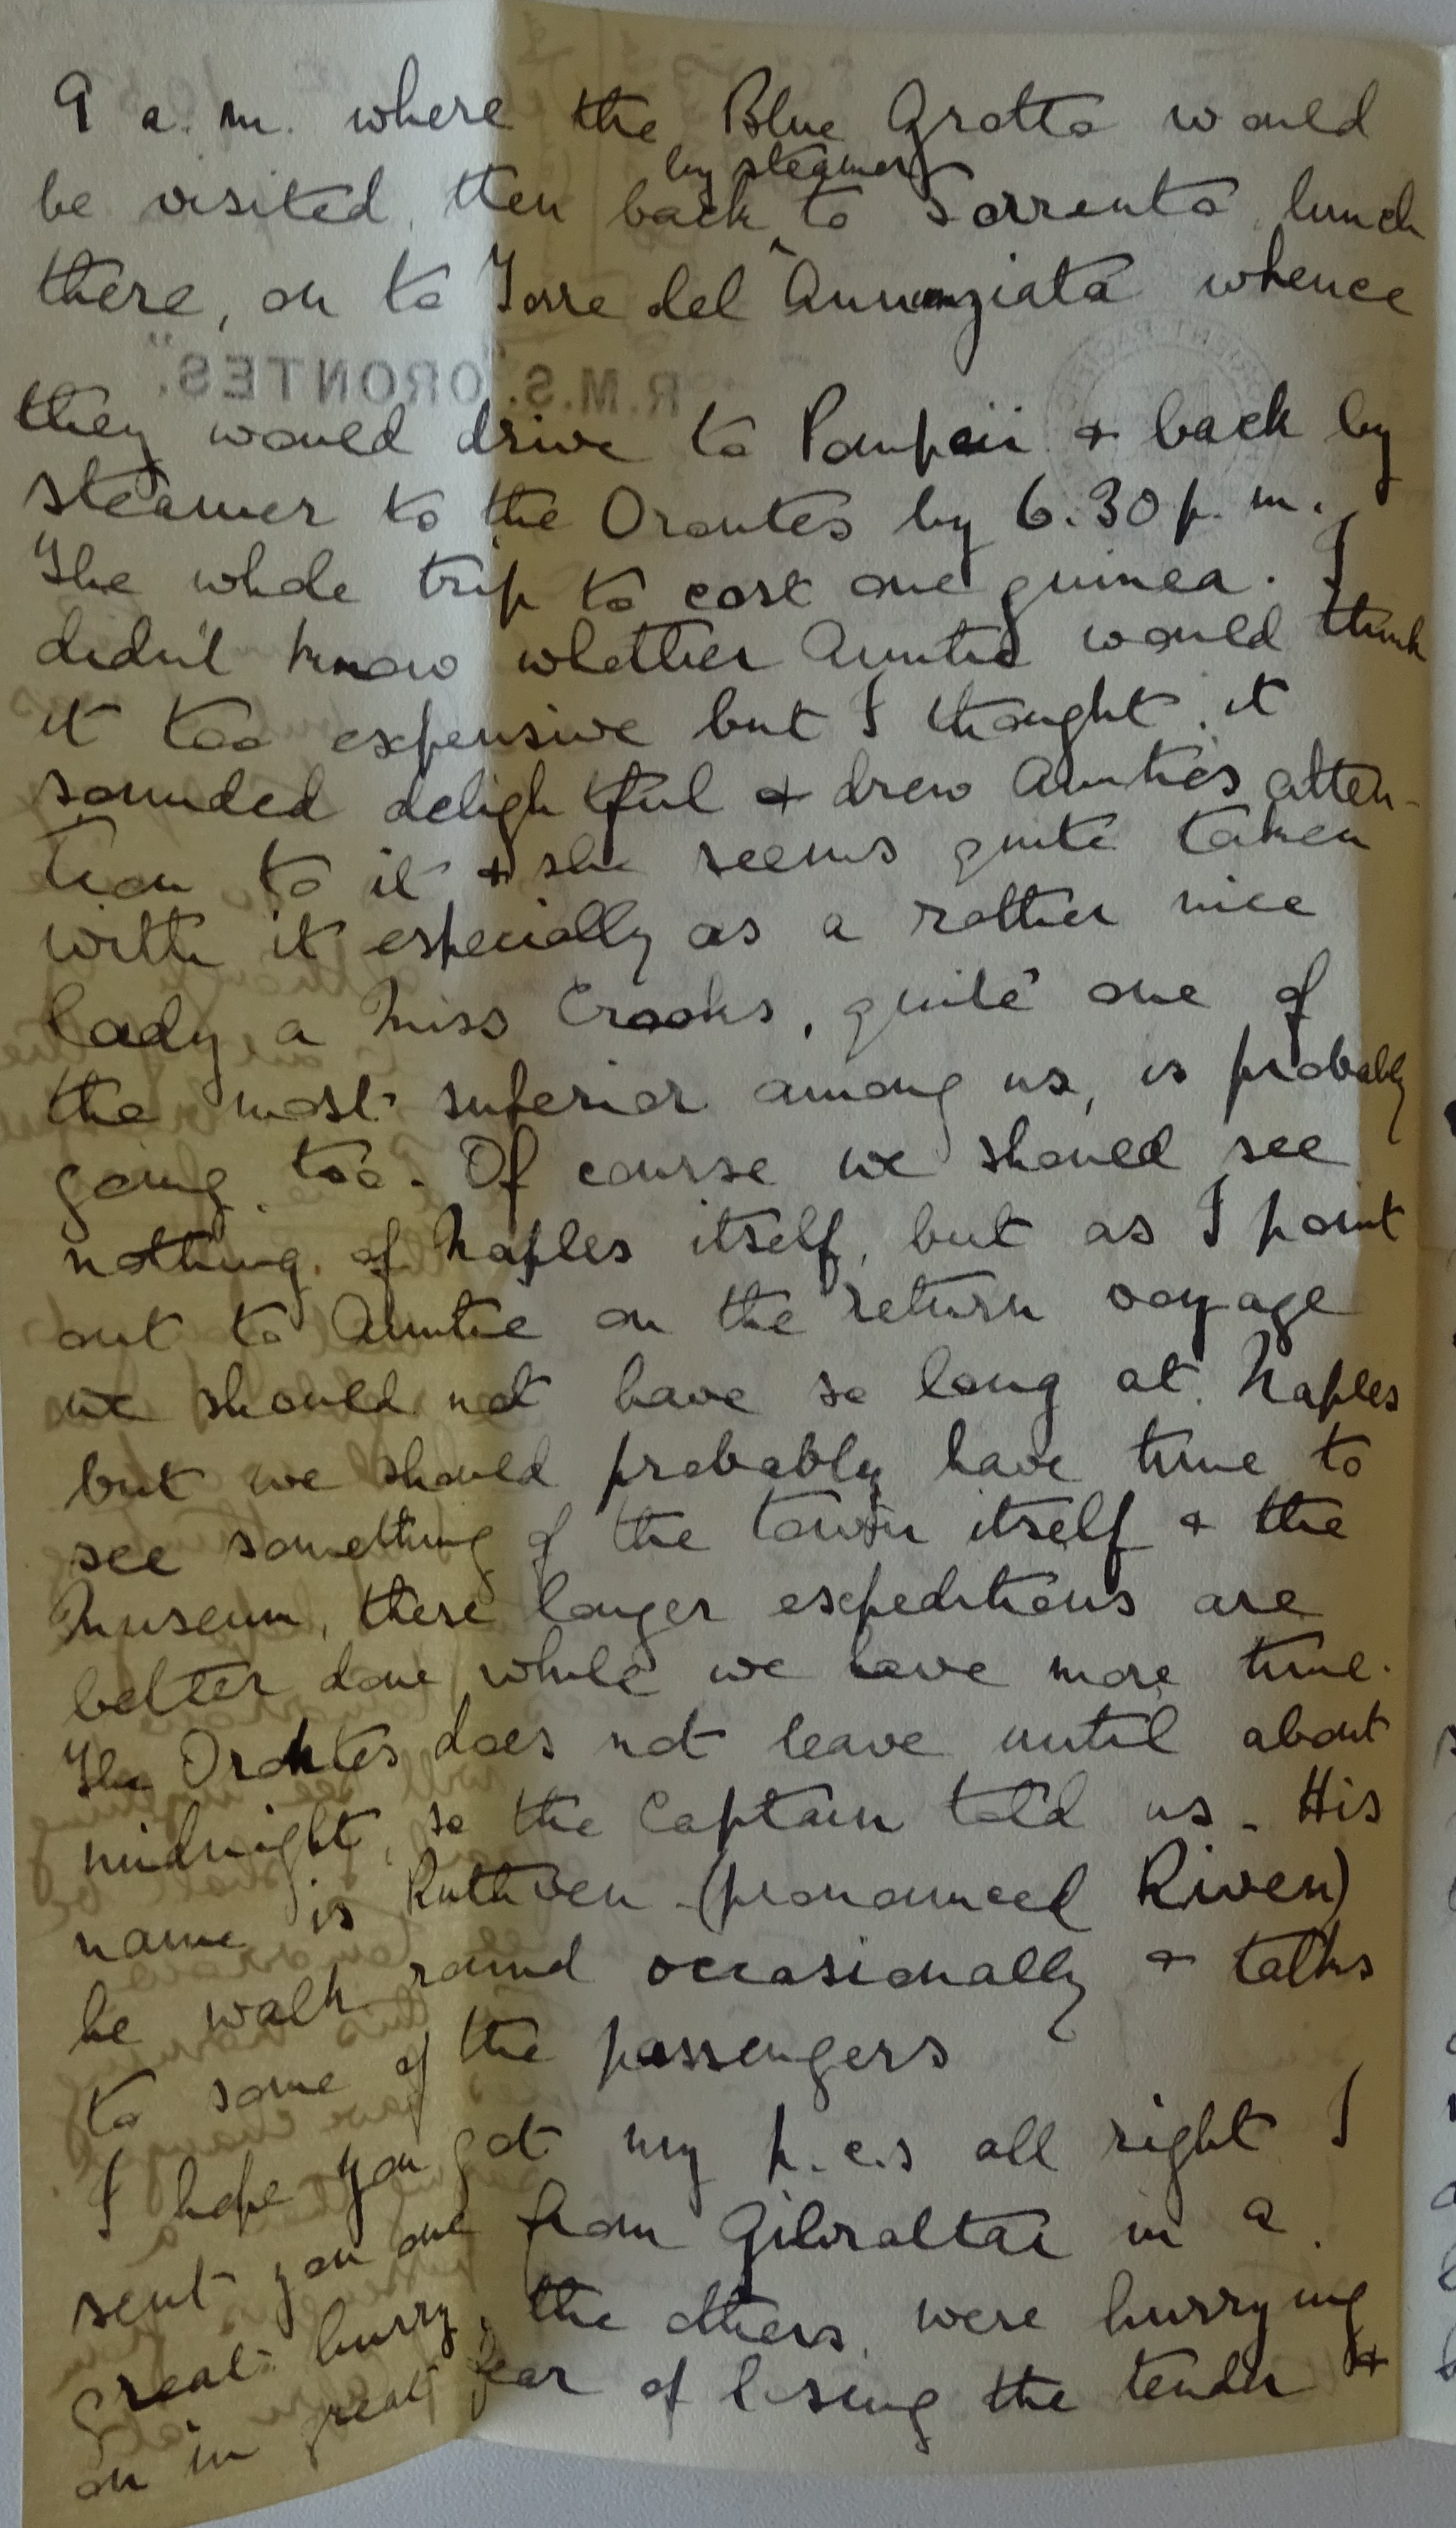 9 a.m. where the Blue Grotto would
be visited, then back ^by steamer to Sorrento, lunch
there, on to Torre del Annunziata whence
R.M.S. "ORONTES".
they would drive to Pompeii & back by
steamer to the Orontes by 6.30 p.m.
The whole trip to cost one guinea. I
didn't know whether Auntie would think
it too expensive but I thought it
sounded delightful & drew Aunties atten-
tion to it & she seems quite taken
with it especially as a rather nice
lady a Miss Crooks, quite one of
the most superior among us, is probably
going too. Of course we should see
nothing of Naples itself, but as I point
out to Auntie on the return voyage
we should not have so long at Naples
but we should probably have time to
see something of the town itself & the
Museum, these longer expeditions are
better done while we have more time.
The Orontes does not leave until about
midnight, so the Captain told us. His
name is Ruthven (pronounced Riven)
he walk round occasionally & talks
to some of the passengers
I hope you got my p.c.s all right I
sent you one from Gibraltar in a
great hurry, the others were hurrying
on in great fear of losing the tender &